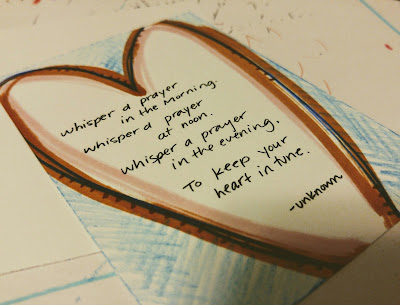 whisper a prayer
in the Morning.
whisper a prayer
at noon.
whisper a prayer
in the evening.
To keep your
heart in tune.
-unknown